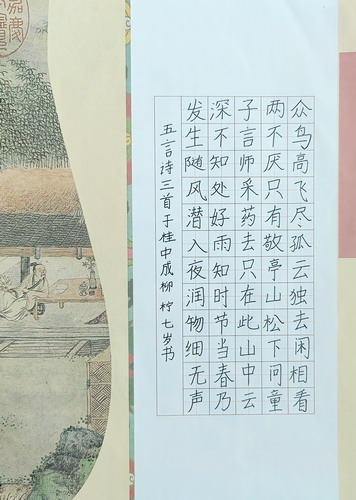 众鸟高飞尽孤云独去闲相看
两不厌只有敬亭山松下问童
子言师采药去只在此山中云
深不知处好雨知时节当春乃
发生随风潜入夜润物细无声
五言诗三首于桂中成柳柠七岁书